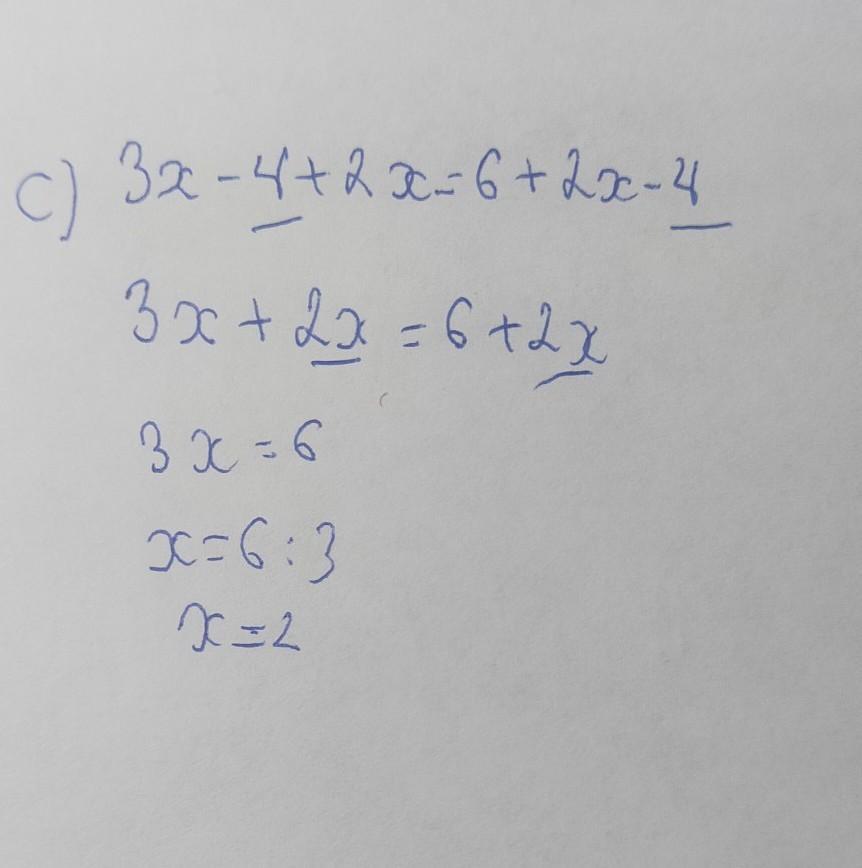 c) 3x - 4 + 2x = 6 + 2x - 4
3x + 2x = 6 + 2x
3x = 6
x = 6 : 3
x = 2